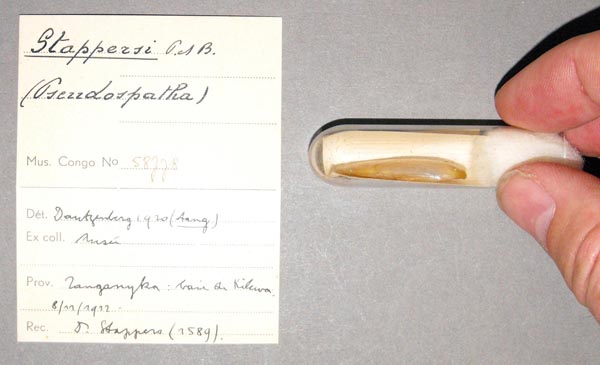 Stappersi P. & B.
(Pseudospatha)
Mus. Congo No 58778
Dét. Dautzenberg 1920
Ex coll. Musée
Prov. Tanganyka: baie de Kilewa.
8/11/1912.
Rec. Dr Stappers (1589).